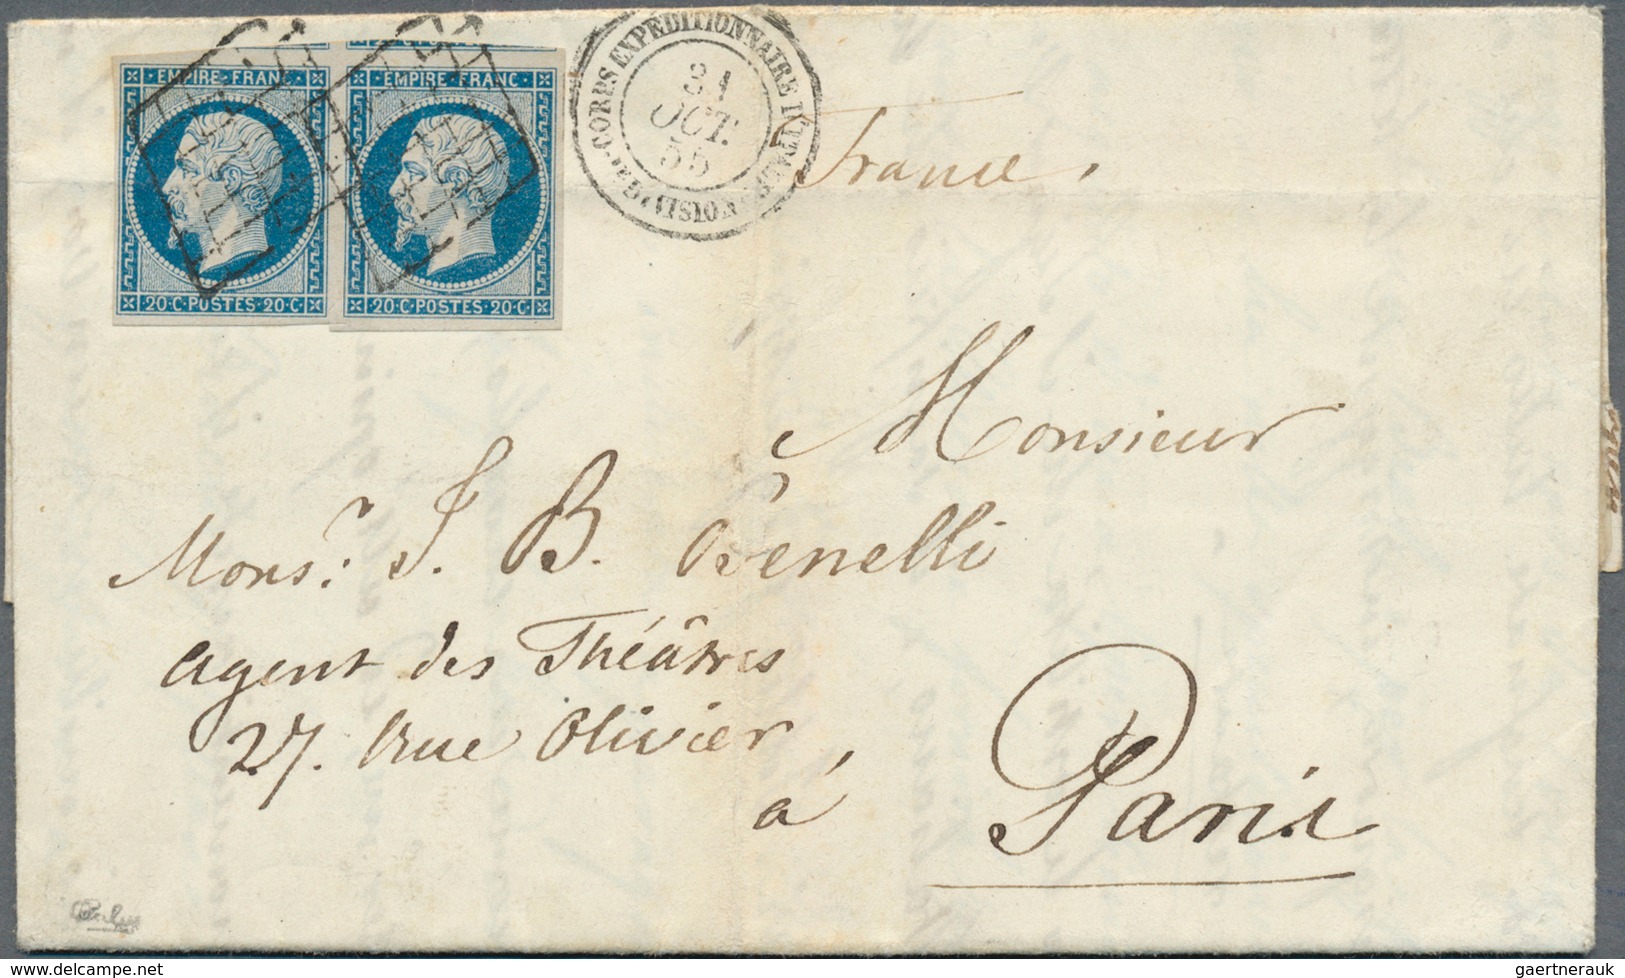 EMPIRE·FRANC· EMPIRE·FRANC·
20·C·POSTES·20·C· 20·C·POSTES·20·C·
CORPS EXPEDITIONNAIRE D'ITALIE
31
OCT.
55
France.
Monsieur
Mons.r J. B. Benelli
agent des Théâtres
27. Rue Olivier
à Paris
delcampe.net
gaertnerauk